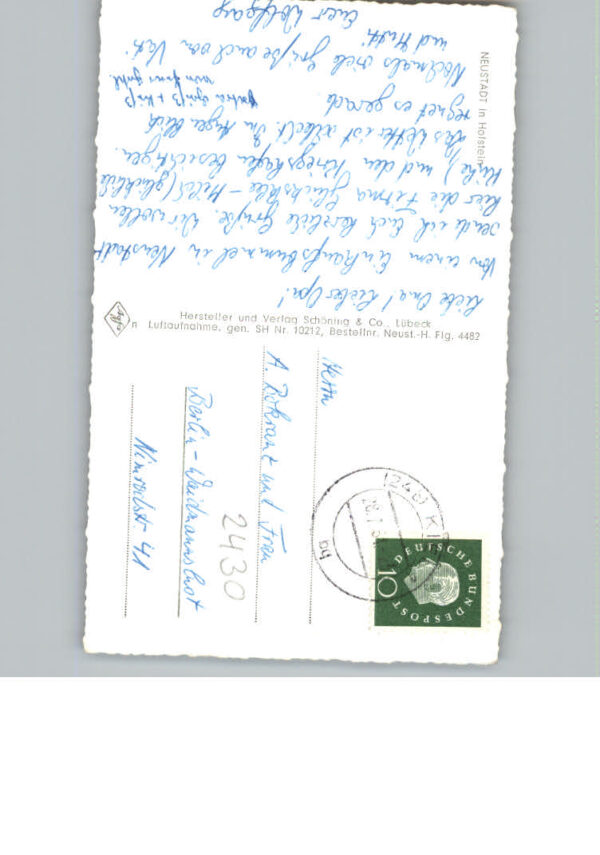 NEUSTADT in Holstein
Liebe Oma! Lieber Opa!
Von einem Einkaufsbummel in Neustadt
sende ich Euch herzliche Grüße. Wir wollen
hier die Firma Glücksklee-Milch (glückliche
Kühe) und den Kriegshafen besichtigen.
Das Wetter ist schlecht. Im Augenblick
regnet es gerade.
Nochmals viele Grüße auch von Vati
und Mutti
Euer Wolfgang
Agfa
Hersteller und Verlag Schöning & Co., Lübeck
Luftaufnahme, gen. SH Nr. 10212, Bestellnr. Neust.-H. Flg. 4482
Herrn
A. Bokranz und Frau
Berlin-Waidmannslust
Nimrodstr. 41
2430
(24b) KI
28.7.
ha
DEUTSCHE BUNDESPOST
10